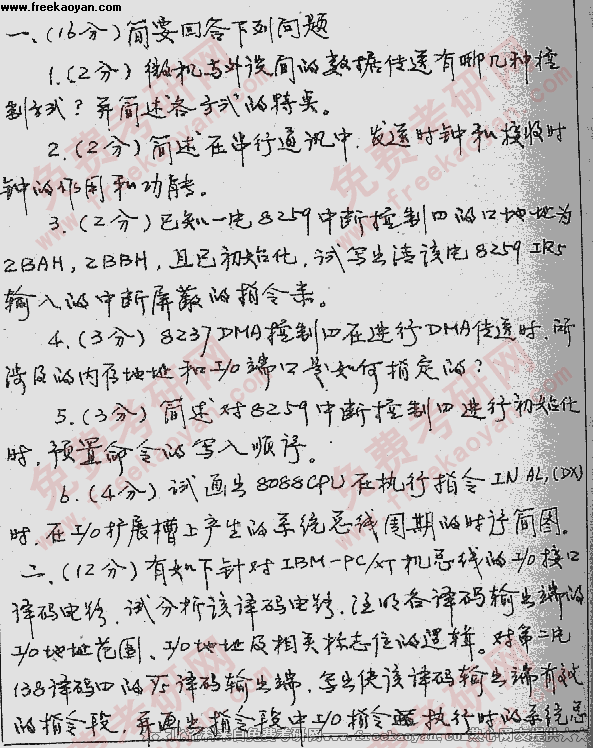 www.freekaoyan.com
一、(16分)简要回答下列问题
1.(2分)微机与外设间的数据传送有哪几种控
制方式?并简述各方式的特点。
2.(2分)简述在串行通讯中,发送时钟和接收时
钟的作用和功能。
3.(2分)已知一片8259中断控制口的口地址为
2BAH,2BBH,且已初始化,试写出清该片8259 IR5
输入的中断屏蔽的指令来。
4.(3分)8237DMA控制口在进行DMA传送时,所
涉及的内存地址和I/O端口是如何指定的?
5.(3分)简述对8259中断控制口进行初始化
时,预置命令的写入顺序。
6.(4分)试画出8088CPU在执行指令IN AL,(DX)
时,在I/O扩展槽上产生的系统总线周期的时序简图。
二、(12分)有如下针对IBM-PC/XT机总线的I/O接口
译码电路,试分析该译码电路,注明各译码输出端的
I/O地址范围、I/O地址及相关标志位的逻辑。对第二片
138译码口的Y5译码输出端,写出使该译码输出端有效
的指令段,并画出指令段中I/O指令执行时的系统总
免费考研网
freekaoyan.com
免费考研网
freekaoyan.com
免费考研网
freekaoyan.com
免费考研网
freekaoyan.com